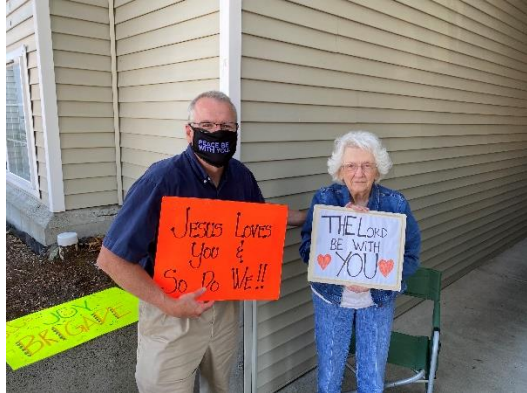 PEACE BE
WITH YOU
Jesus Loves
You &
So Do We!!
THE LORD
BE WITH
YOU
JOY
BRIGADE